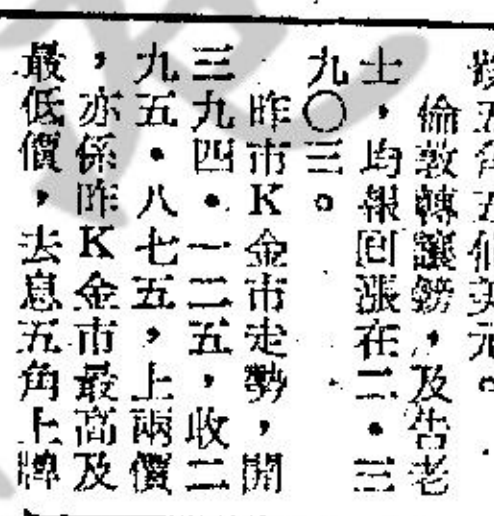 五角五仙美元。
倫敦轉讓鎊,及告老
士,均報囘漲在二•三
九〇三。
昨市K金市走勢,開
三九四•一二五,收二
九五•八七五,上兩價
,亦係昨K金市最高及
最低價,去息五角上牌